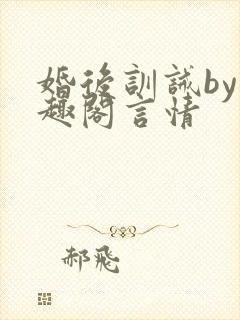 婚後訓誡by
趣閣言情
郝飛